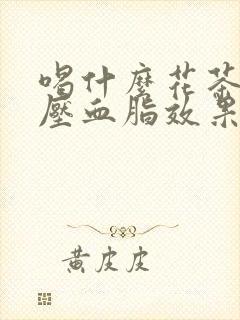 喝什麼花茶
壓血脂效果
黃皮皮